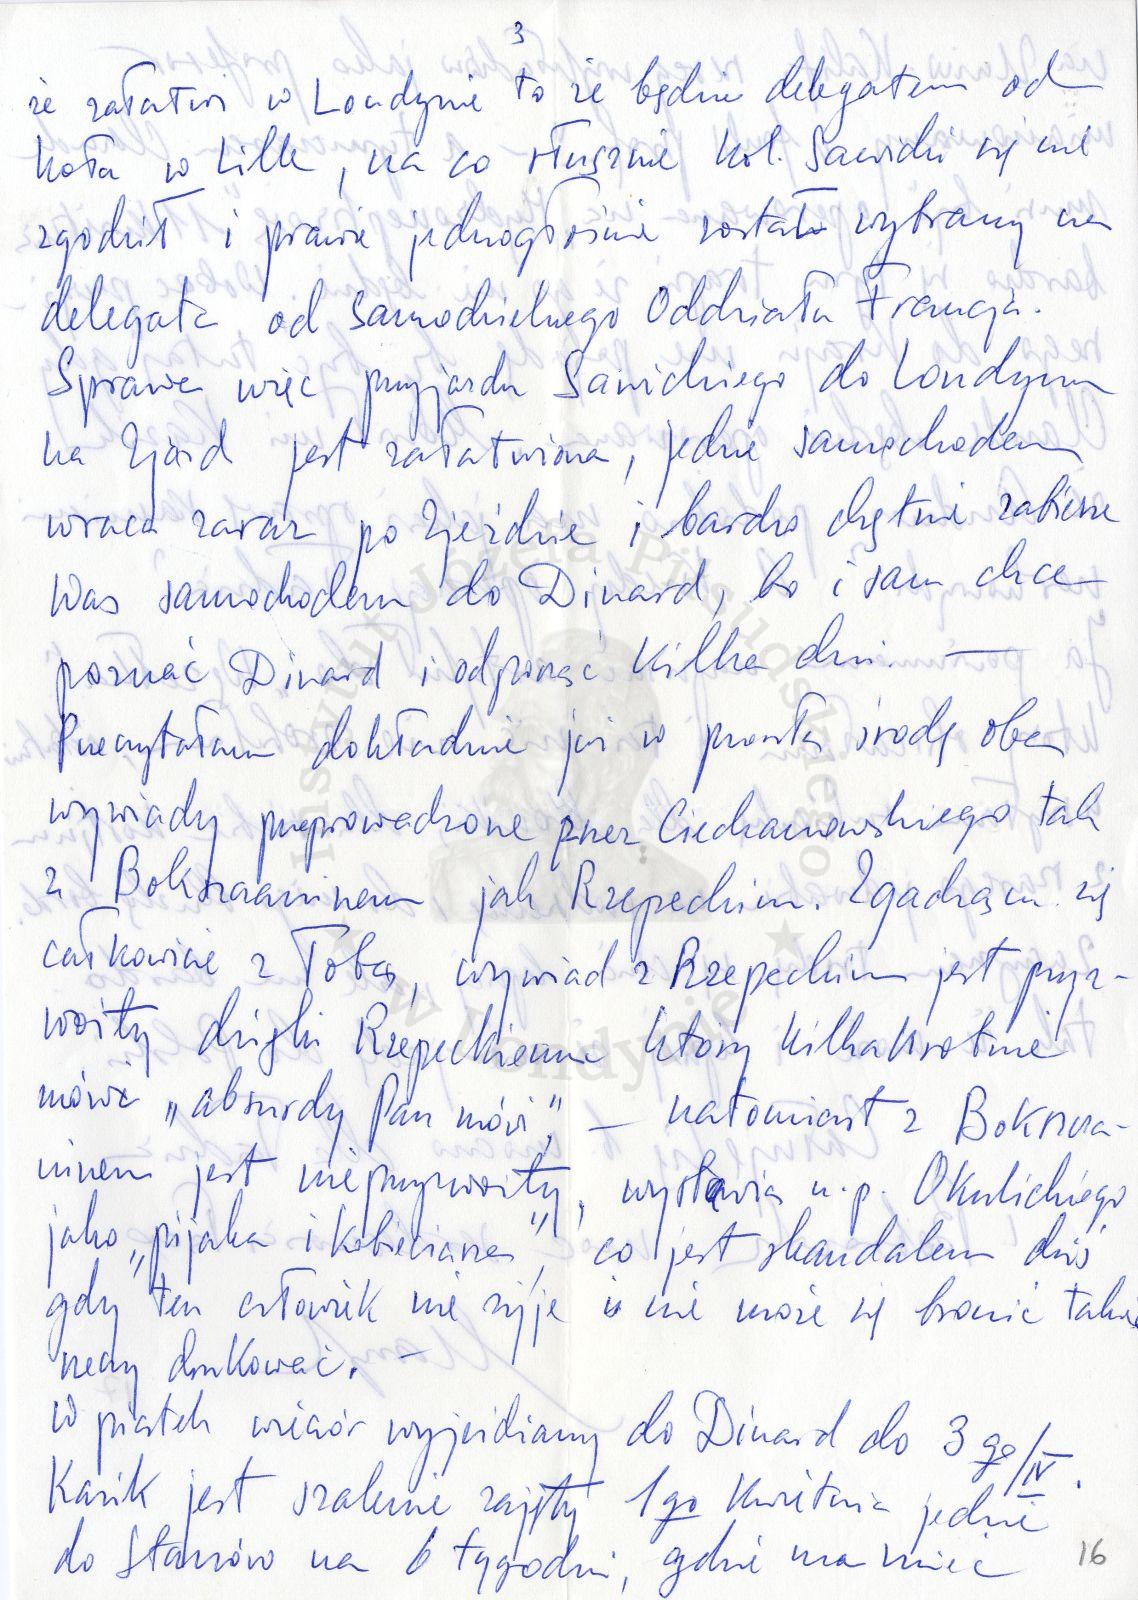 3
że załatwi w Londynie to że będzie delegatem od
Koła w Lille, na co słusznie kol. Sawicki się nie
zgodził i prawie jednogłośnie został wybrany na
delegata od Samodzielnego Oddziału Francja.
Sprawa więc przyjazdu Sawickiego do Londynu
na Zjazd jest załatwiona, jedzie samochodem
wraca zaraz po Zjeździe i bardzo chętnie zabierze
Was samochodem do Dinard, bo i sam chce
poznać Dinard i odpocząć kilka dni. —
Przeczytałam dokładnie już w przeszłą środę oba
wywiady przeprowadzone przez Ciechanowskiego tak
z Bokszaninem jak Rzepeckim. Zgadzam się
całkowicie z Tobą, wywiad z Rzepeckim jest przyz-
woity dzięki Rzepeckiemu który kilkakrotnie
mówi „absurdy Pan mówi", — natomiast z Bokszza-
ninem jest nieprzyzwoity, wystawia n.p. Okulickiego
jako „pijaka i kobieciarza", co jest skandalem dziś
gdy ten człowiek nie żyje i nie może się bronić takie
rzeczy drukować. —
W piątek wieczór wyjeżdżamy do Dinard do 3 go/IV.
Kazik jest szalenie zajęty 1go Kwietnia jedzie
do Stanów na 6 tygodni, gdzie ma mieć
16
Instytut Józefa Piłsudskiego
w Londynie